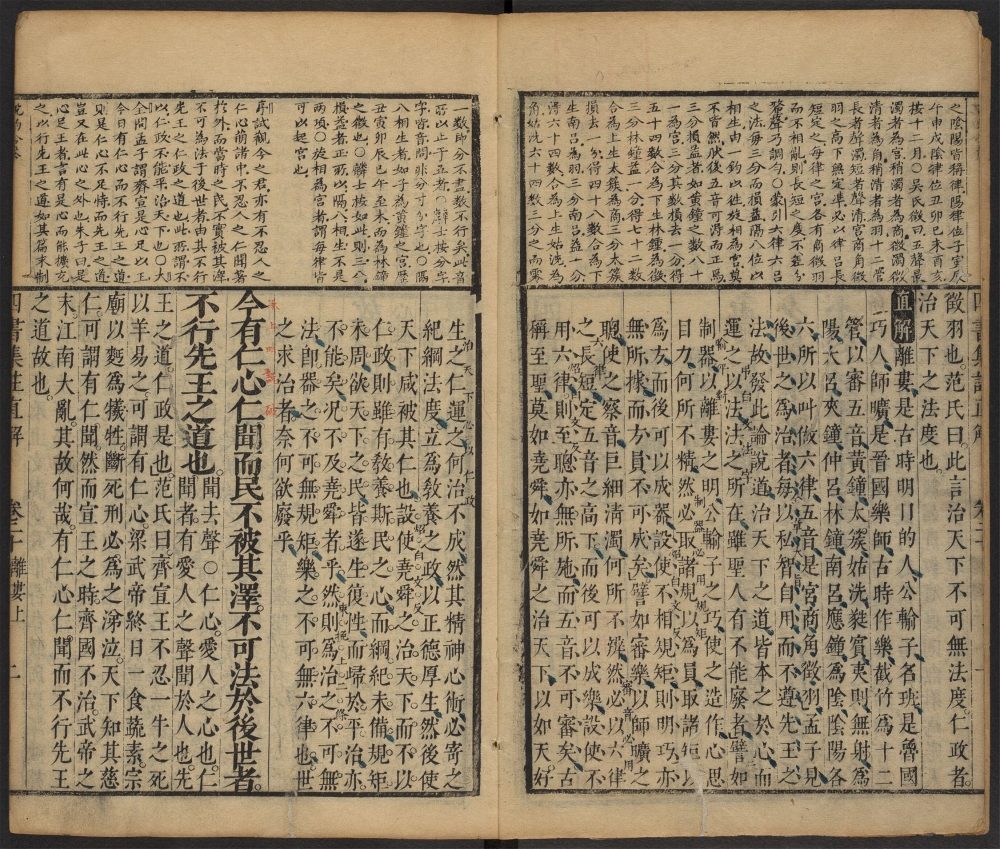 之陰陽皆稱律陽律位子寅辰
午申戌陰律位丑卯巳未酉亥
按十二月〇吳氏徵曰五聲最
濁者為宮稍濁者為商微濁微
清者為角稍清者為羽十二管
長者聲濁短者聲清宮商角徵
羽之高下無定準必以律管長
短定之每律之宮各有商微羽
而不相亂則長短之度不差分
之法每三分而損益隔八位以
相生由一鈞以徃旋相為宮莫
不皆然狀後五音可得而正馬
三分損益者如黃鍾之數八十
一為宮三分其數損去一分得
五十四數合為下生林鍾為徵
三分林鍾益一分得七十二數
合為上生太簇為商三分太簇
損去一分得四十八數合為下
生南呂為羽三分南呂益一分
得六十四數合為上生姑洗為
角姑洗六十四數三分之而零
徵羽也范氏曰此言治天下不可無法度仁政者
治天下之法度也
直解 離婁是古時明目的人公輸子名班是魯國
巧人師曠是晉國樂師古時作樂截竹為十二
管以審五音黃鐘太簇姑洗蕤賓夷則無射為
陽大呂夾鐘仲呂林鐘南呂應鐘為陰陰陽各
六所以叫做六律五音是宮商角徵羽孟子見
後世之為治者每以私智自用而不遵先王之
法故發此論說道治天下之道皆本之於心而
運之以法法之所在雖聖人有不能廢者譬如
制器以離婁之明公輸子之巧使之造作心思
目力何所不精然必取諸規以為員取諸矩以
為方而後器以成設使不用規矩則明巧亦
無所據而方員不可成矣譬如審樂以師曠之
聰使之察音巨細清濁何所不辨然必以六律
之長短定五音之高下而後可以成樂設使不
用六律則至聰亦無所施而五音不可審矣古
稱至聖莫如堯舜如堯舜之治天下以如天好
一數即分不盡數不行矣此音
所以止于五者
字皆音問非分寸分字也〇隔
八相生者如子為黃鍾之宮歷
丑寅卯辰巳午至未而為林鍾
之徵也〇解士按如此則三分
損益者正所以隔八相生不是
兩項〇旋相為宮者謂每律皆
可以起宮也
序試觀今之君亦有不忍人之
仁心前諸中不忍人之仁聞著
於外而當時之民不實被其澤
不可為法于後世者由其不行
先王之仁政之道也此所謂不
以仁政不能平治天下也〇大
全問孟子謂齊宣是心足以王
今曰有仁心而不行先王之道
只是仁心不足恃而先王之道
豈又在此心之外也朱子曰是
心足王者言有是心而能擴充
之以行先王之道如其篇末制
生之仁運之何治不成然其精神心術必寄之
紀綱法度立為教養之政以正德厚生然後使
天下咸被其仁也設使堯舜之治天下而不以
仁政則雖有教養斯民之心而綱紀未備規矩
未周欲天下之民皆遂生復性而歸於平治亦
不能矣況不及堯舜者乎然則為治之不可無
法卽器之不可無規矩樂之不可無六律也世
之求治者奈何欲廢乎
今有仁心仁聞而民不被其澤不可法於後世者
不行先王之道也聞去聲〇仁心愛人之心也仁
聞者有愛人之聲聞於人也先
王之道仁政是也范氏曰齊宣王不忍一牛之死
以羊易之可謂有仁心梁武帝終日一食蔬素宗
廟以麪為犧牲斷死刑必為之涕泣天下知其慈
仁可謂有仁聞然而宣王之時齊國不治武帝之
末江南大亂其故何哉有仁心仁聞而不行先王
之道故也
四書集註直解
卷三十離婁上
二